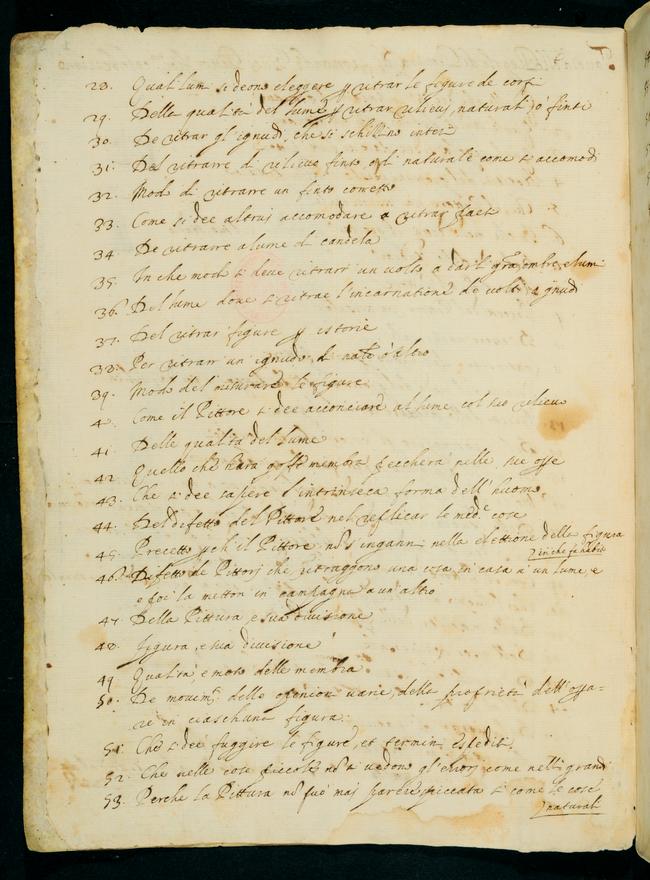 28. Qual lumi si deono eleggere p ritrar le figure de corpi
29. Della qualità del lume p ritrar rilievi, naturali, ò finti
30. De ritrar gl'ignudi, che si schifino interi
31. Del ritrarre di rilievo finto o di naturale come s accomodi
32. Modo di ritrarre un sito corretto
33. Come si dee altrui accomodare a ritrar paesi
34. De ritrarre a lume di candela
35. In che modo si deve ritrarr un volto e darli gra ombre e lumi
36. Del lume dove si ritrae l'incarnatione de volti, e ignudi
37. Del ritrar figure p istorie
38. Per ritrarr un ignudo di nate o altro
39. Modo del misurare le figure
40. Come il Pittore si dee acconciare al lume col suo rilievo
41. Delle qualità del lume
42. Quello che hara goffe membra peccherà nelle sue
43. Che si dee sapere l'intrinseca forma dell'huomo
44. Del difetto del Pittore nel replicar le med.e cose
45. Precetto p ch il Pittore nõ s'inganni nella elettione della figura
in che fa habito
46. Difetto de Pittori che ritraggono una cosa in casa a un lume, e
e poi la metton in campagna a un altro
47. Della Pittura, e sua divisione
48. figura, e sua divisione
49. Qualità, e moto delle membra
50. De movim.ti delle openion varie, della proprietà dell'
re in ciaschuna figura.
51. Che si dee fuggire le figure, et termin espediti
52. Che nelle cose piccole nõ si vedono gl'errori come nelle grandi
53. Perche la Pittura nõ può mai parere spiccata si come le cose
naturali